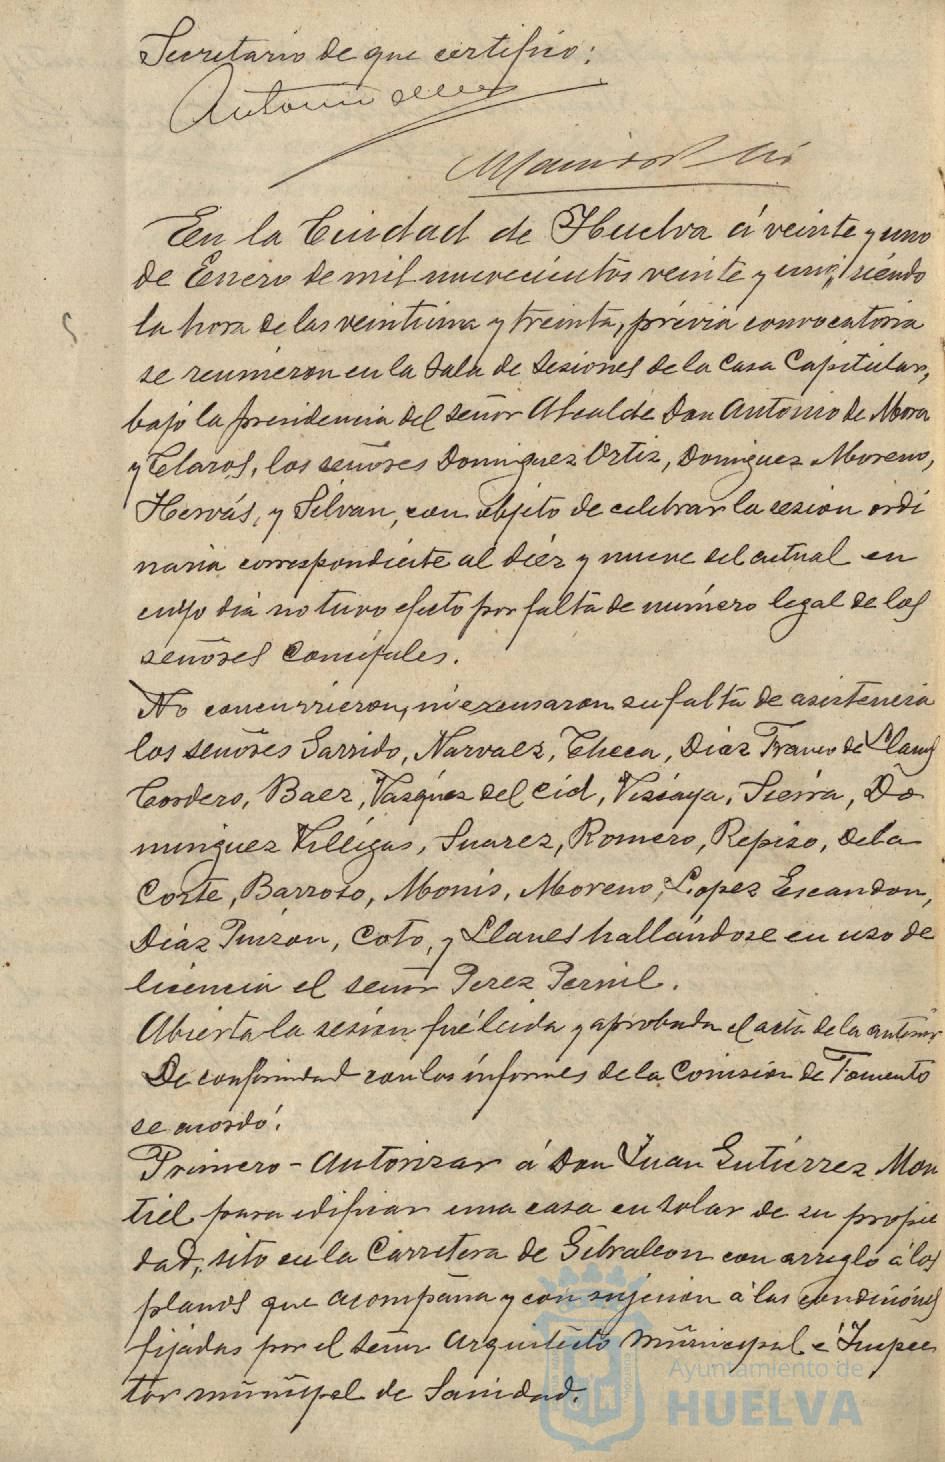 Secretario de que certifico:
Antonio
En la Ciudad de Huelva á veinte y uno
de Enero de mil nuevecientos veinte y uno, siendo
la hora de las veintiuna y treinta, prévia convocatoria
se reunieron en la Sala de Sesiones de la Casa Capitular,
bajo la presidencia del señor Alcalde Don Antonio de Mora
y Claros, los señores Dominguez Ortiz, Dominguez Moreno,
Hervás, y Silvan, con objeto de celebrar la sesion ordi
naria correspondiente al diéz y nueve del actual en
cuyo dia no tuvo efecto por falta de número legal de los
señores Concejales.
No concurrieron, ni excusaron su falta de asistencia
los señores Garrido, Narvaez, Checa, Diaz Franco de Llanos
Cordero, Baez, Vazquez del Cid, Viscaya, Sierra, Do
minguez Villegas, Suarez, Romero, Repiso, de la
Corte, Barroso, Monis, Moreno, Lopez Escandon,
Diaz Pinzon, Coto, y Llanes hallándose en uso de
licencia el señor Perez Pernil.
Abierta la sesion fué leida y aprobada el acta de la anterior
De conformidad con los informes de la Comision de Fomento
se acordó:
Primero - Autorizar á Don Juan Gutiérrez Mon
tiel para edificar una casa en solar de su propie
dad, sito en la Carretera de Gibraleon con arreglo á los
planos que acompaña y con sujecion á las condiciónes
fijadas por el señor Arquitecto Municipal é Inspec
tor municipal de Sanidad.
Ayuntamiento de
HUELVA